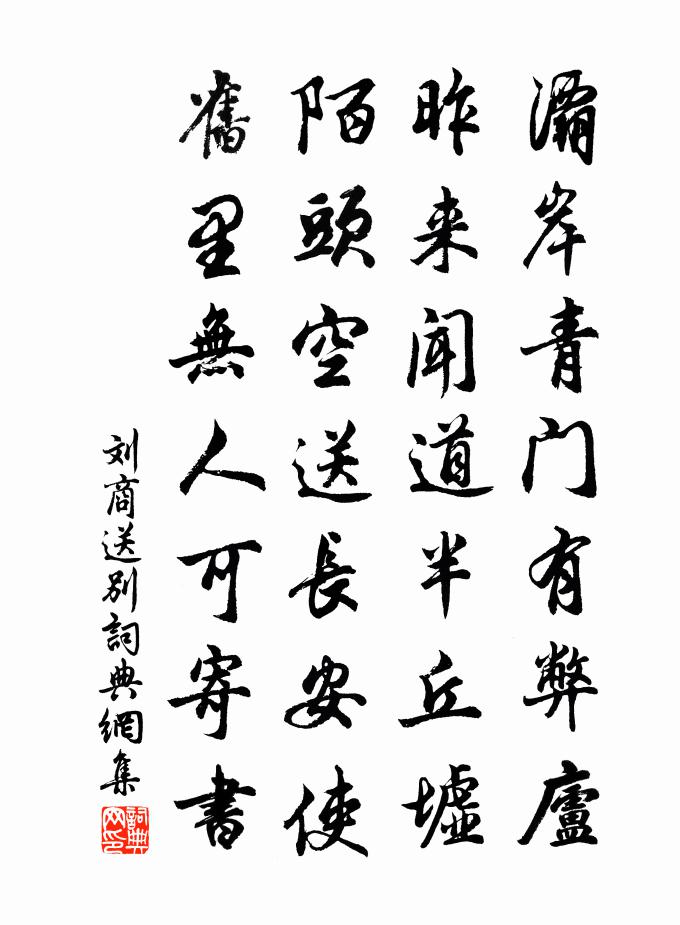 灞岸青门有弊廬
昨来闻道半丘墟
陌頭空送長安使
舊里無人可寄書
刘商送别詞典網集
詞典网印